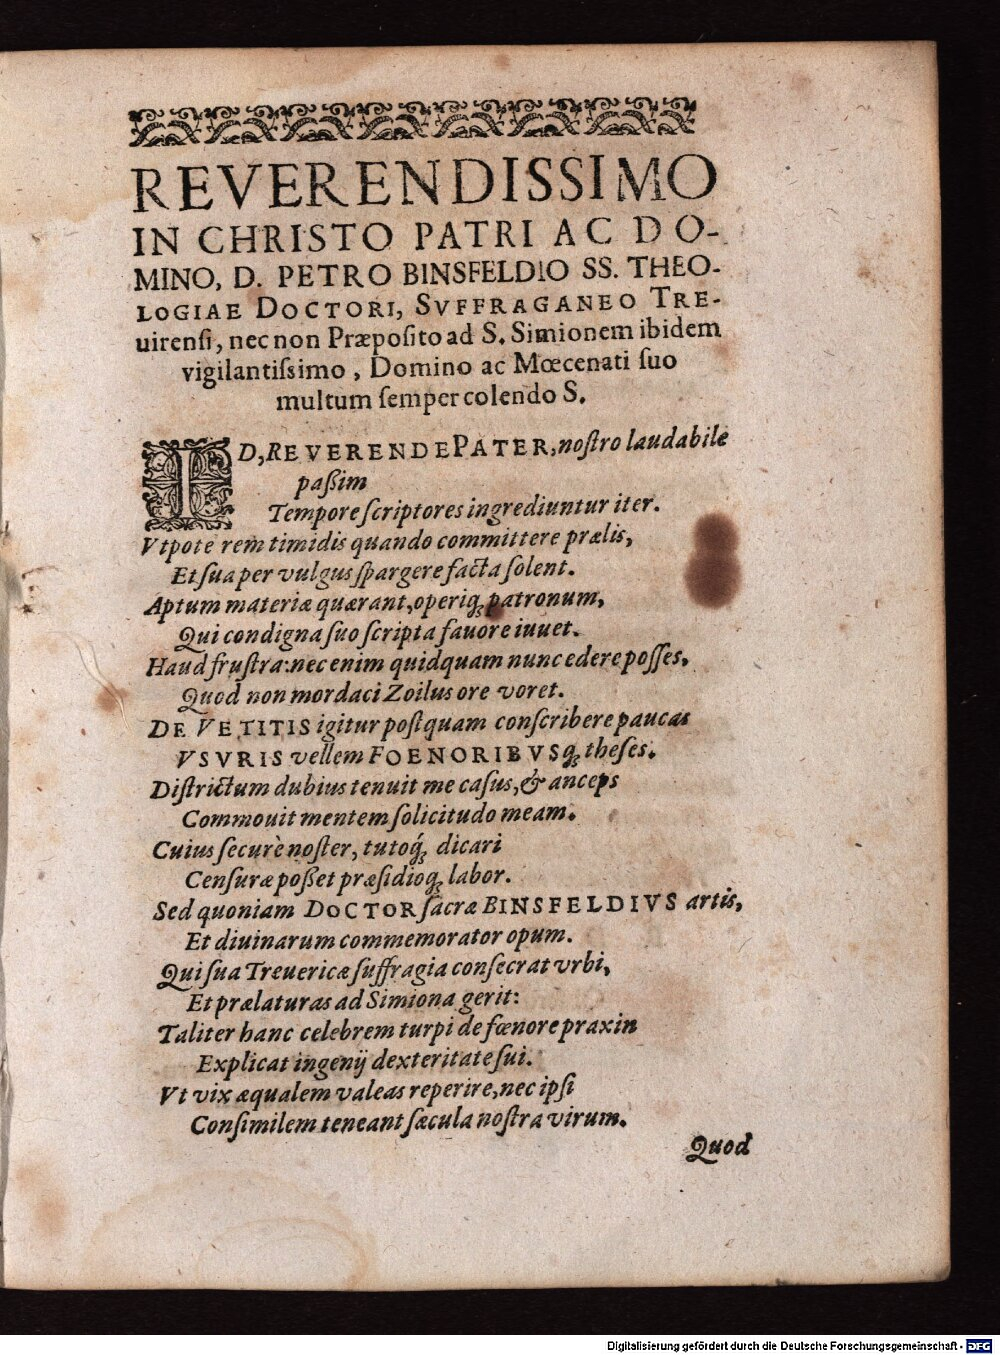 REVERENDISSIMO
IN CHRISTO PATRI AC DO-
MINO, D. PETRO BINSFELDIO SS. THEO-
LOGIAE DOCTORI, SVFFRAGANEO TRE-
uirenſi, nec non Præpoſito ad S. Simionem ibidem
vigilantiſsimo, Domino ac Mœcenati ſuo
multum ſemper colendo S.
ID, REVERENDE PATER, noſtro laudabile
paßim
Tempore ſcriptores ingrediuntur iter.
Vtpote rem timidis quando committere prælis,
Et ſua per vulgus ſpargere facta ſolent.
Aptum materiæ quærant, operiq́; patronum,
Qui condigna ſuo ſcripta fauore iuuet.
Haud fruſtra: nec enim quidquam nunc edere poſſes,
Quod non mordaci Zoilus ore voret.
DE VETITIS igitur poſtquam conſcribere paucas
VSVRIS vellem FOENORIBVSq; theſes.
Diſtrictum dubius tenuit me caſus, & anceps
Commouit mentem ſolicitudo meam.
Cuius ſecurè noſter, tutoq́; dicari
Cenſuræ poßet præſidioq; labor.
Sed quoniam DOCTOR ſacræ BINSFELDIVS artis,
Et diuinarum commemorator opum.
Qui ſua Treuericæ ſuffragia conſecrat vrbi,
Et prælaturas ad Simiona gerit:
Taliter hanc celebrem turpi de fœnore praxin
Explicat ingenij dexteritate ſui.
Vt vix æqualem valeas reperire, nec ipſi
Conſimilem teneant ſæcula noſtra virum.
Quod
Digitalisierung gefördert durch die Deutsche Forschungsgemeinschaft - DFG